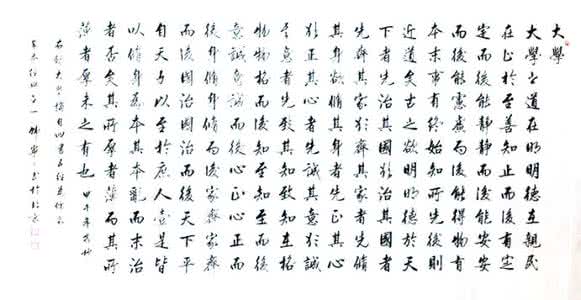 大學
大學之道在明明德在親民
在止於至善知止而後有定
定而後能靜靜而後能安安
而後能慮慮而後能得物有
本末事有終始知所先後則
近道矣古之欲明明德於天
下者先治其國欲治其國者
先齊其家欲齊其家者先脩
其身欲脩其身者先正其心
欲正其心者先誠其意欲誠
其意者先致其知致知在格
物物格而後知至知至而後
意誠意誠而後心正心正而
後身脩身脩而後家齊家齊
而後國治國治而後天下平
自天子以至於庶人壹是皆
以脩身為本其本亂而末治
者否矣其所厚者薄而其所
薄者厚未之有也 甲午年
右錄大學摘自四書五經